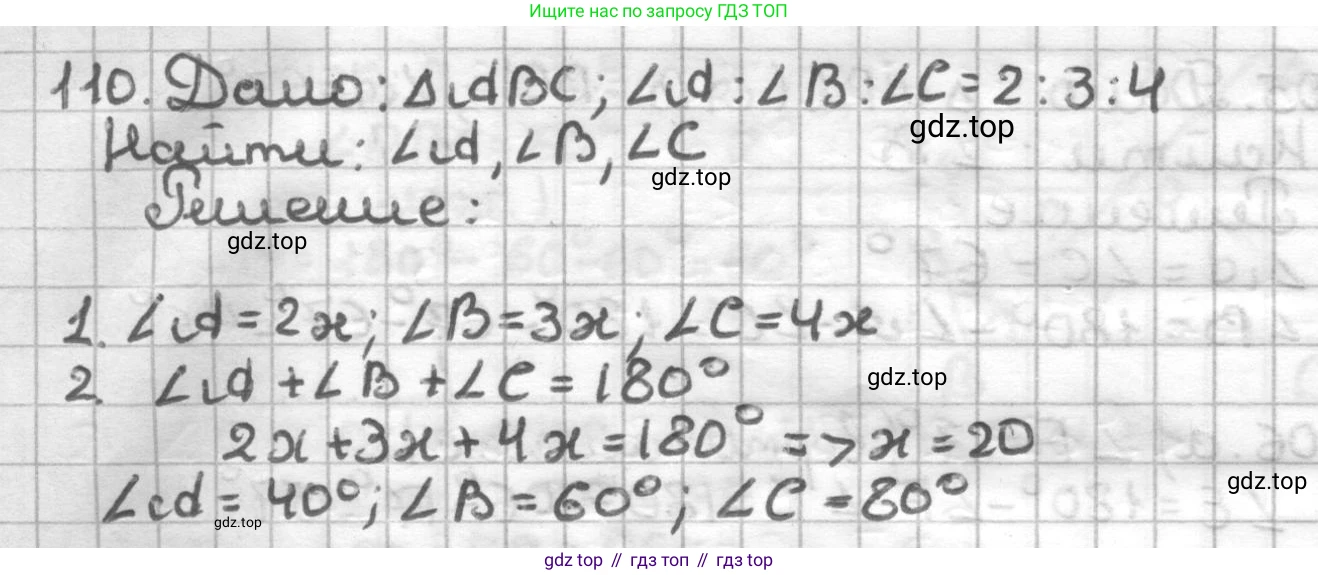 Ищите нас по запросу ГДЗ ТОП
110. Дано: ΔABC; ∠A : ∠B : ∠C = 2 : 3 : 4
gdz.top
Найти: ∠A, ∠B, ∠C
gdz.top
Решение:
gdz.top
1. ∠A = 2x; ∠B = 3x; ∠C = 4x
2. ∠A + ∠B + ∠C = 180°
gdz.top
2x + 3x + 4x = 180° => x = 20
∠A = 40°; ∠B = 60°; ∠C = 80°
gdz.top
gdz.top
gdz top // гдз топ // gdz top